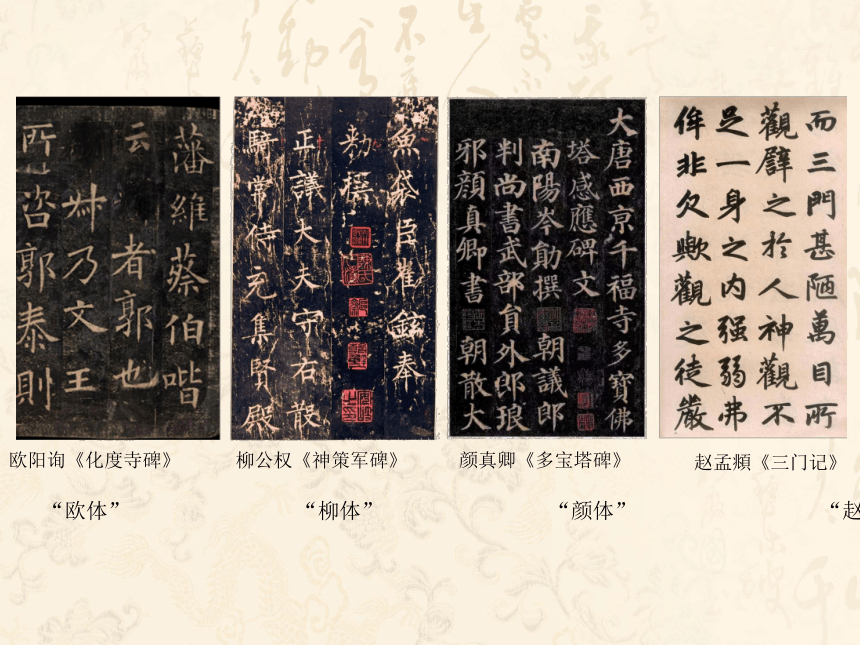 藩維蔡伯喈
云者郭也
艸乃文王
所咨郭泰則
魚袋臣崔鋐奉
勑撰
正議大夫守右散
騎常侍充集賢殿
大唐西京千福寺多寶佛
塔感應碑文
南陽岑勛撰 朝議郎
判尚書武部員外郎琅
邪顏真卿書 朝散大
而三門甚陋萬目所
觀譬之於人神觀不
足一身之内强弱弗
侔非欠歟觀之徒嚴
欧阳询《化度寺碑》
柳公权《神策军碑》
颜真卿《多宝塔碑》
赵孟頫《三门记》
“欧体”
“柳体”
“颜体”
“赵